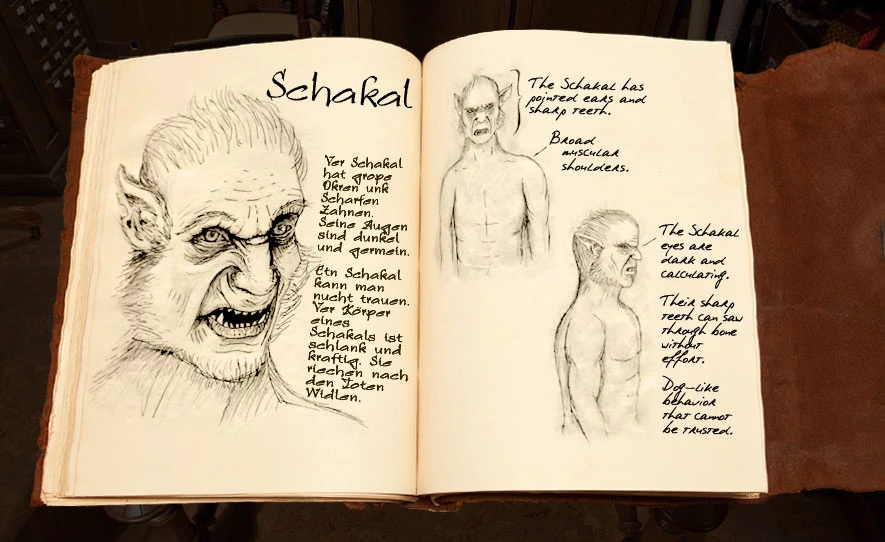 Schakal
Ver Schakal
hat grope
Ohren unk
Scharfen
Zahnen.
Seine Augen
sind dunkel
und germein.
Etn Schakal
kann man
nucht trauen.
Ver Körper
eines
Schakals ist
schlank und
kraftig. Sie
riechen nach
den Toten
Widlen.
The Schakal has
pointed ears and
sharp teeth.
Broad
muscular
shoulders.
The Schakal
eyes are
dark and
calculating.
Their sharp
teeth can saw
through bone
without
effort.
Dog-like
behavior
that cannot
be trusted.